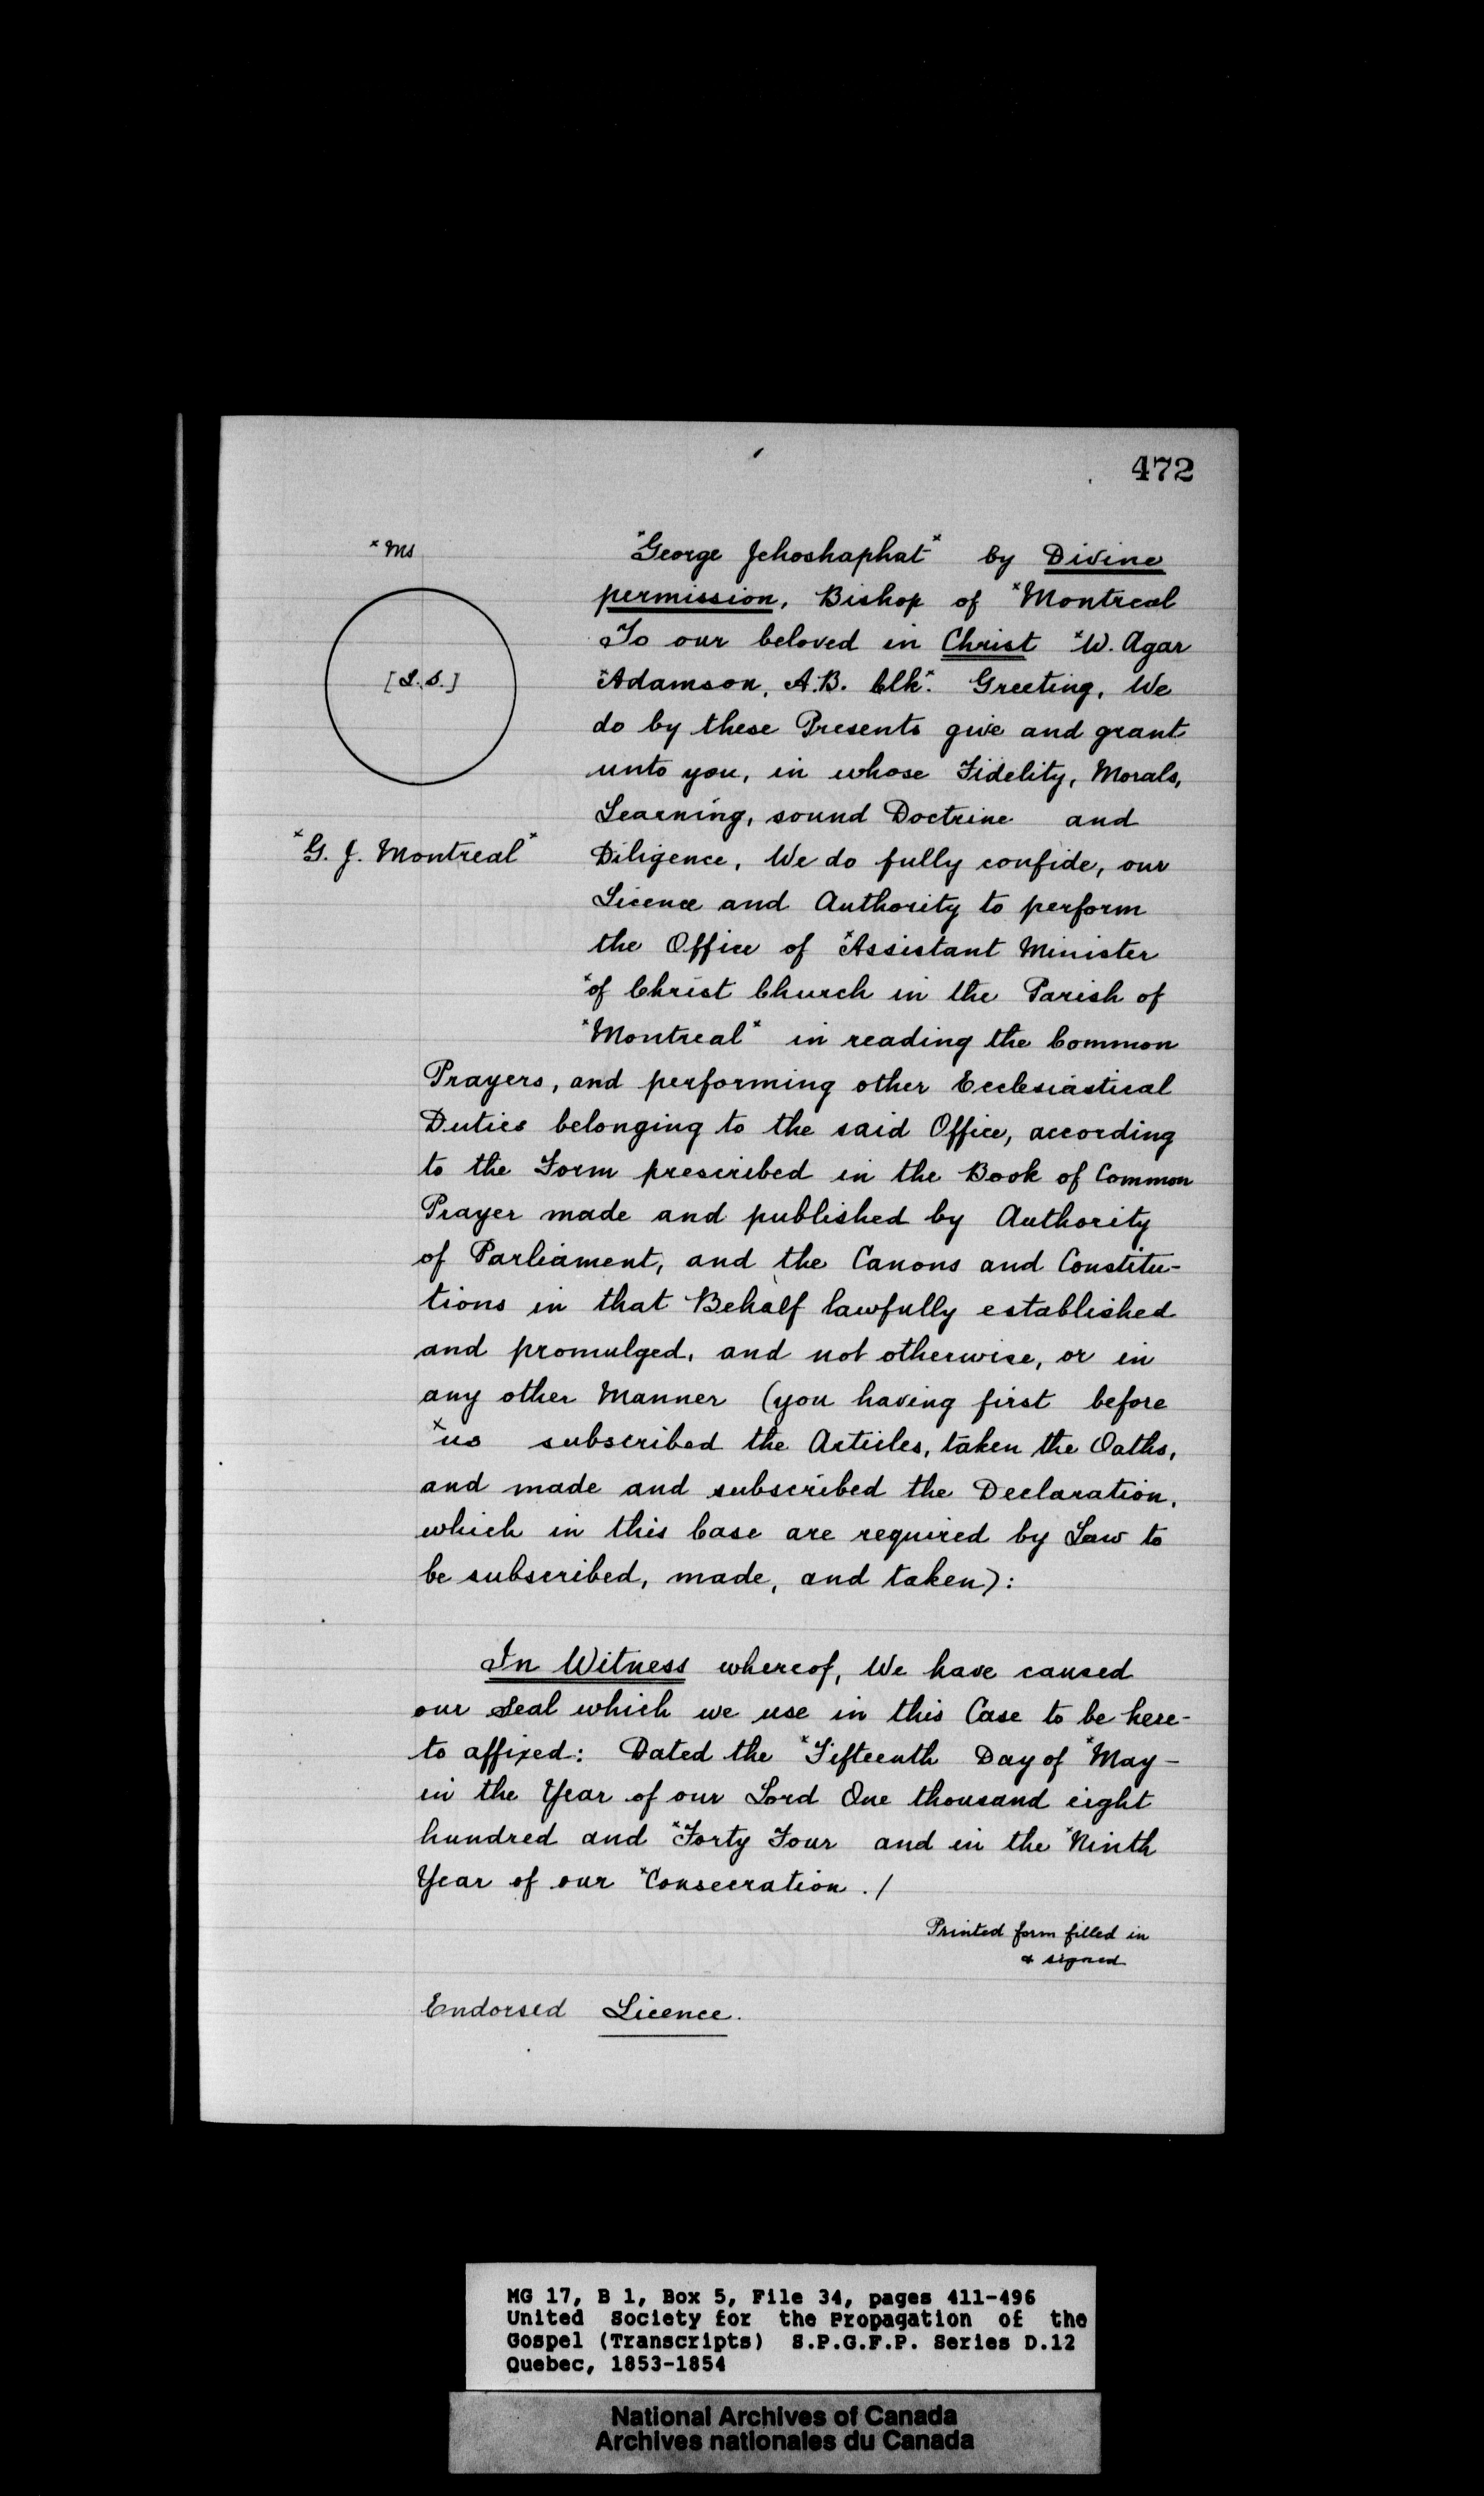 472
*Ms
[L.S.]
*G. J. Montreal*
*George Jehoshaphat* by Divine
permission, Bishop of *Montreal
To our beloved in Christ *W. Agar
*Adamson, A.B. Clk*. Greeting, We
do by these Presents give and grant
unto you, in whose Fidelity, Morals,
Learning, sound Doctrine and
Diligence, We do fully confide, our
Licence and Authority to perform
the Office of *Assistant Minister
*of Christ Church in the Parish of
*Montreal* in reading the Common
Prayers, and performing other Ecclesiastical
Duties belonging to the said Office, according
to the Form prescribed in the Book of Common
Prayer made and published by Authority
of Parliament, and the Canons and Constitu-
tions in that Behalf lawfully established
and promulged, and not otherwise, or in
any other Manner (you having first before
*us subscribed the Articles, taken the Oaths,
and made and subscribed the Declaration,
which in this Case are required by Law to
be subscribed, made, and taken):
In Witness whereof, We have caused
our Seal which we use in this Case to be here-
to affixed: Dated the *Fifteenth Day of *May -
in the Year of our Lord One thousand eight
hundred and *Forty Four and in the *Ninth
Year of our *Consecration ./
Printed form filled in
& signed
Endorsed Licence.
MG 17, B 1, Box 5, File 34, pages 411-496
United Society for the Propagation of the
Gospel (Transcripts) S.P.G.F.P. Series D.12
Quebec, 1853-1854
National Archives of Canada
Archives nationales du Canada